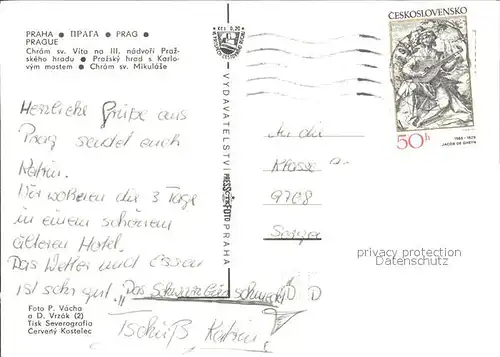 PRAHA • ПРАГА • PRAG •
PRAGUE
Chrám sv. Víta na III. nádvoří Praž-
ského hradu • Pražský hrad s Karlo-
vým mostem • Chrám sv. Mikuláše
Herzliche Grüße aus
Prag sendet euch
Katrin.
Wir wohnen die 3 Tage
in einem schönem
älteren Hotel.
Das Wetter und Essen
ist sehr gut. „Das Schwarzbier schmeckt
Tschüß Katrin
Foto P. Vácha
a D. Vrzák (2)
Tisk Severografia
Červený Kostelec
Kčs 0,20
VYDAVATELSTVÍ PRESSFOTO PRAHA
ČESKOSLOVENSKO
50 h
JACOB DE GHEYN
An die
Klasse
privacy protection
Datenschutz